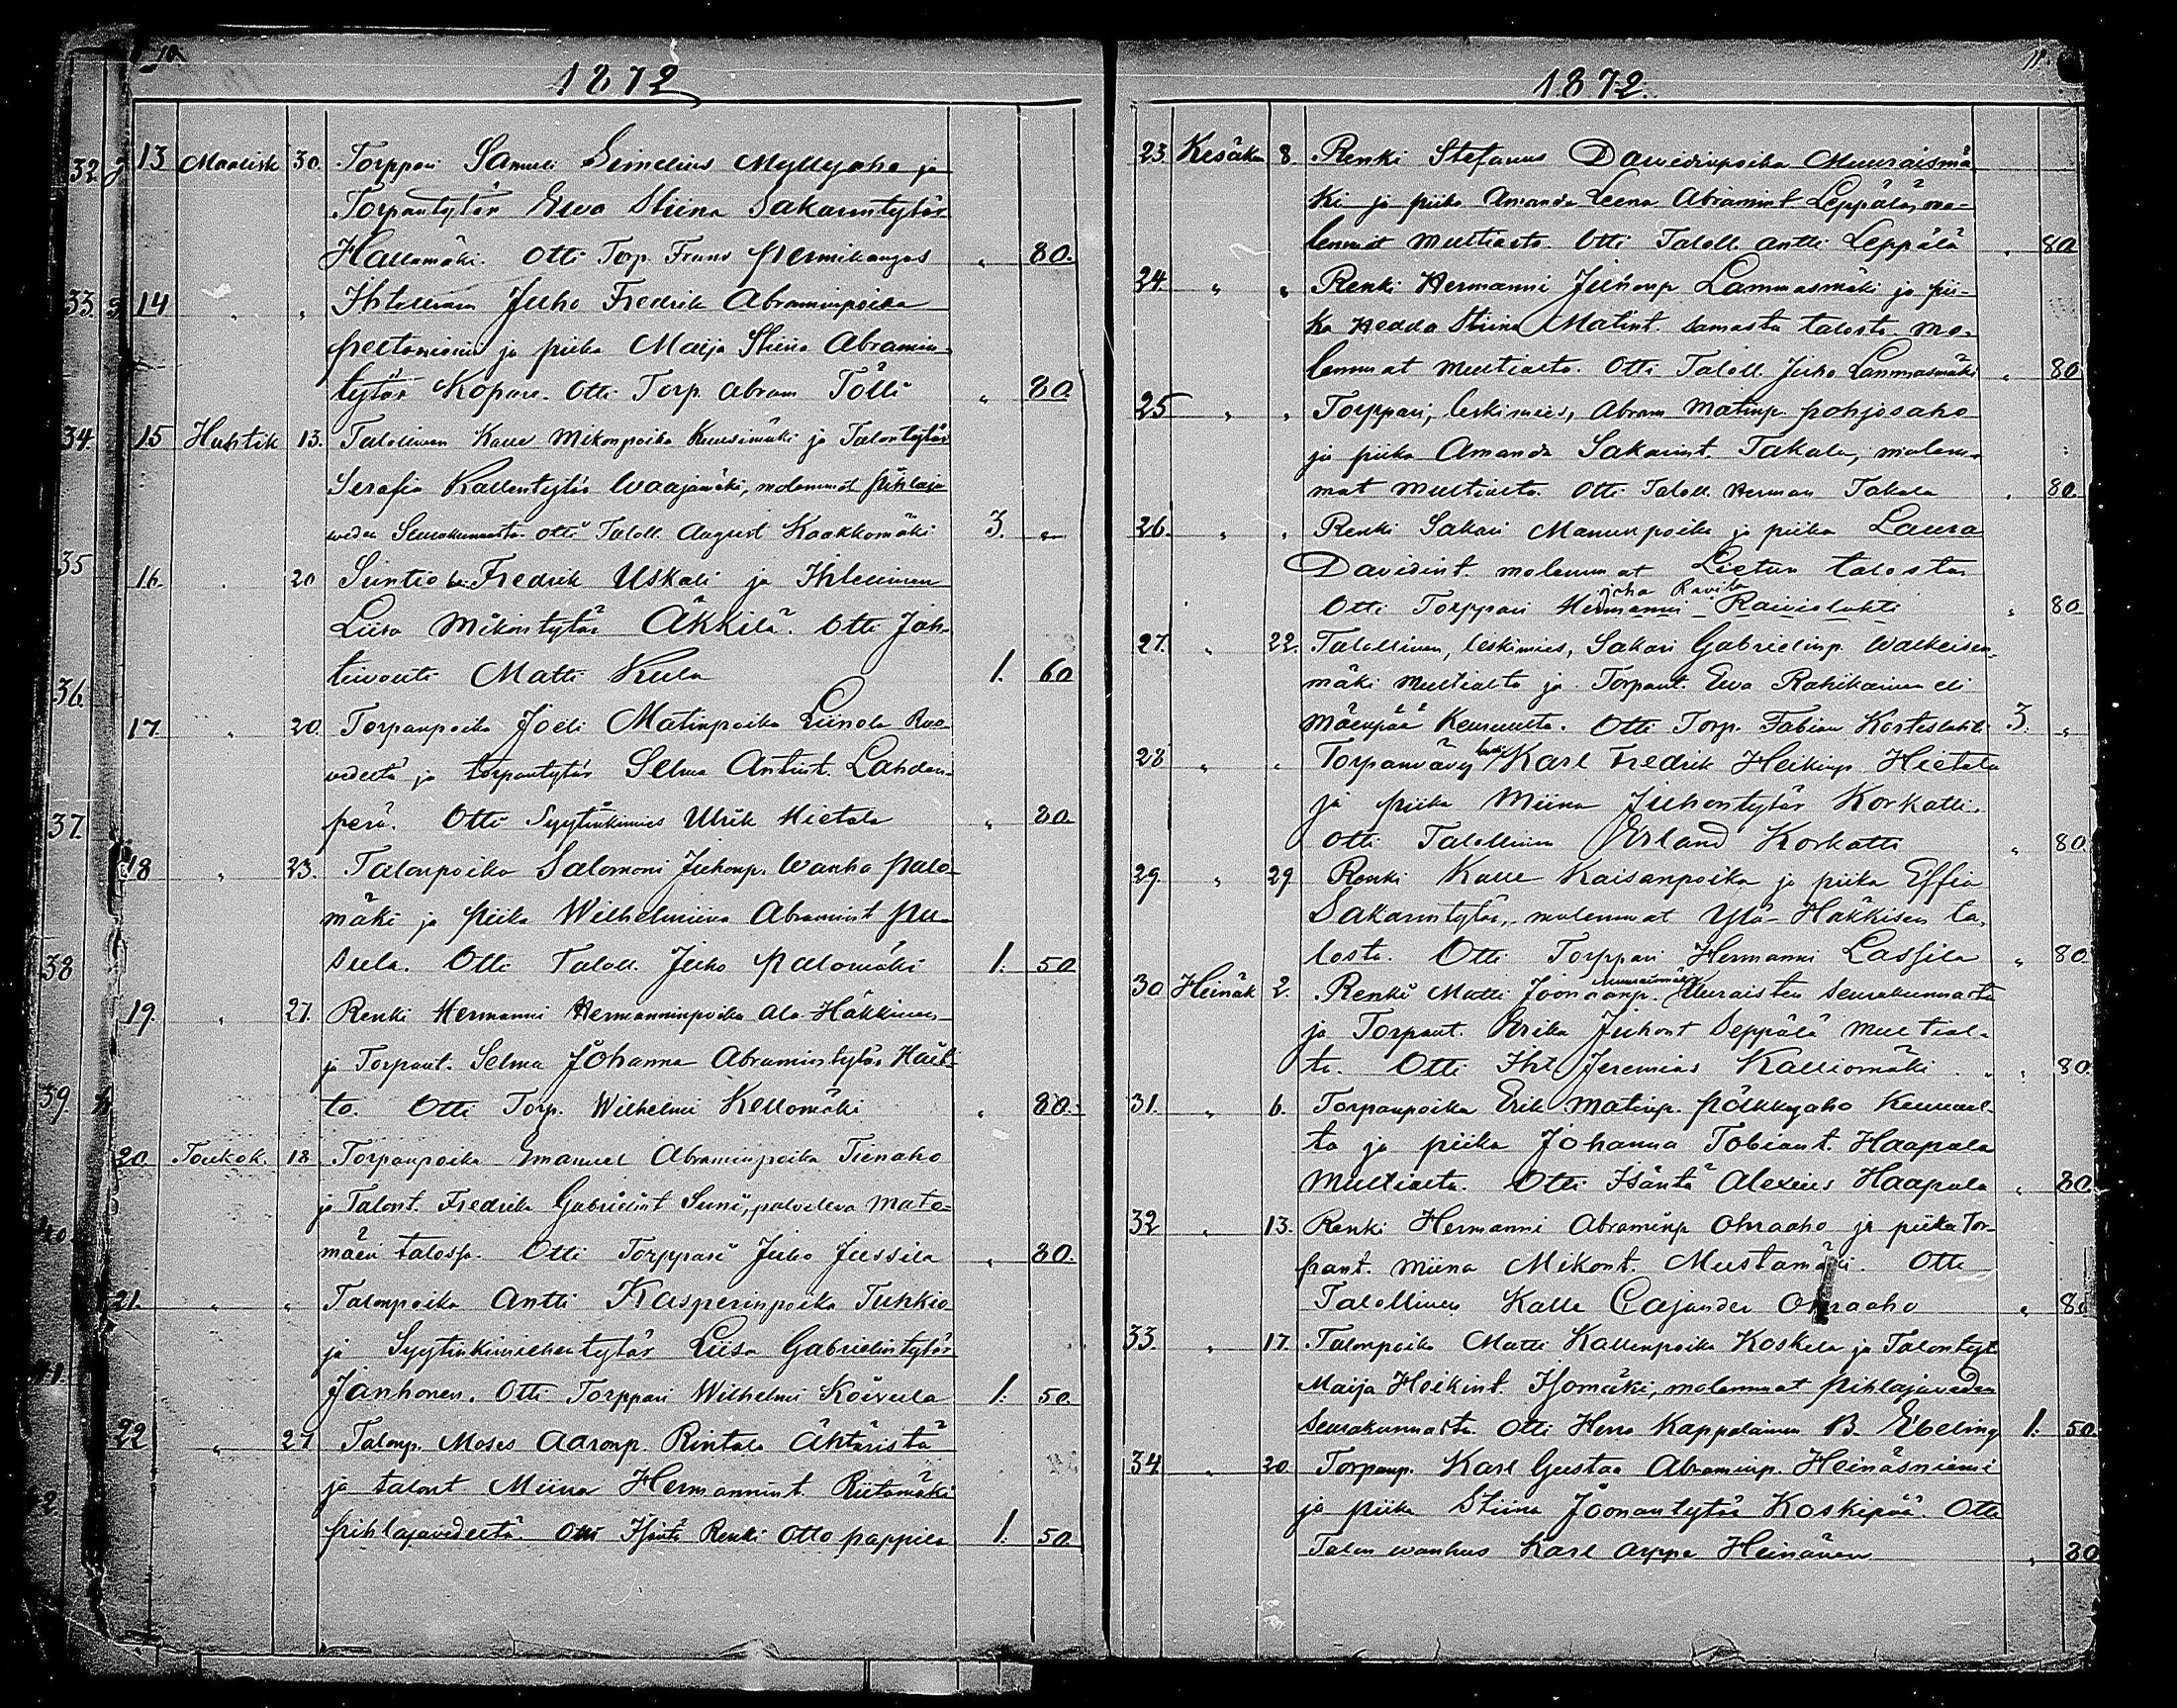 10.
1872
13 Maalisk 30. Torppari Samuli Simelius Myllyaho ja
Torpantytär Ewa Stiina Sakarintytär
Hallamäki. Otti Torp. Frans Niemikangas „ 80.
14 „ „ Itsellinen Juho Fredrik Abraminpoika
Peltoniemi ja piika Maija Stiina Abramin-
tytär Kopare. Otti Torp. Abram Tölli „ 80.
15 Huhtik 13. Talollinen Kalle Mikonpoika Kuusimäki ja Talontytär
Serafia Kallentytär Waajamäki, molemmat Pihlaja
weden Seurakunnasta. Otti Taloll. August Kaakkomäki 3. „
16. „ 20 Suntio Fredrik Uskali ja Itsellinen
Liisa Mikontytär Äkkilä. Otti Jah-
tivouti Matti Kula 1. 60
17. „ 20. Torpanpoika Joeli Matinpoika Liinola Ruo-
vedeltä ja torpantytär Selma Antint. Lahden-
perä. Otti Syytinkimies Ulrik Hietala „ 80.
18 „ 23. Talonpoika Salomoni Juhonp. Wanha Palo-
mäki ja Piika Wilhelmiina Abramint Pu-
sula. Otti Taloll. Juho Palomäki 1. 50
19. „ 27. Renki Hermanni Hermanninpoika Ala-Häkkinen
ja Torpant. Selma Johanna Abramintytär Hali-
to. Otti Torp. Wilhelmi Kellomäki „ 80.
20. Toukok. 18 Torpanpoika Emanuel Abraminpoika Tienaho
ja Talont. Fredrika Gabrielint Suni, palveleva Mato-
mäen talossa. Otti Torppari Juho Jussila „ 80.
21. „ „ Talonpoika Antti Kasperinpoika Tuhkio
ja Syytinkimiehentytär Liisa Gabrielintytär
Janhonen. Otti Torppari Wilhelmi Koivula 1. 50.
22 „ 27 Talonp. Moses Aaronp. Rintala Ähtäristä
ja talont Miina Hermannint. Riitamäki
Pihlajavedeltä. Otti Isäntä Renki Otto Pappila 1. 50.
32.
33.
34.
35
36.
37.
38
39
40.
41.
42.
11.
1872.
23 Kesäkuu 8. Renki Stefanus Dawidinpoika Muuraismä
ki ja piika Amanda Leena Abramint Leppälä, mo-
lemmat Multialta. Otti Taloll. Antti Leppälä „ 80
24 „ „ Renki Hermanni Juhonp Lammasmäki ja pii-
ka Hedda Stiina Matint. samasta talosta. mo-
lemmat Multialta. Otti Taloll. Juho Lammasmäki „ 80
25 „ „ Torppari, leskimies, Abram Matinp. Pohjosaho
ja piika Amanda Sakarint. Takala, molem-
mat Multialta. Otti Taloll. Herman Takala „ 80.
26. „ „ Renki Sakari Manunpoika ja piika Laura
Davidint. molemmat Lietun talosta
Otti Torppari Hermanni Raiviolahti „ 80
27. „ 22. Talollinen, leskimies, Sakari Gabrielinp. Walkeisen-
mäki Multialta ja Torpant. Ewa Rahikainen eli
Mäenpää Keuruulta. Otti Torp. Fabian Korteslahti 3. „
28 „ „ Torpanvävy leski Karl Fredrik Heikinp Hietala
ja piika Miina Juhontytär Korkatti.
Otti Talollinen Erland Korkatti „ 80.
29. „ 29 Renki Kalle Kaisanpoika ja piika Effia
Sakarintytär, molemmat Ylä-Häkkisen ta-
losta. Otti Torppari Hermanni Lassila „ 80.
30 Heinäk 2. Renki Matti Joonaanp. Muuraisten seurakunnasta
ja Torpant. Erika Juhont Seppälä Multial-
ta. Otti Itsl Jeremias Kalliomäki „ 80.
31. „ 6. Torpanpoika Erik Matinp. Pökkyaho Keuruul-
ta ja piika Johanna Tobiant. Haapala
Multialta. Otti Isäntä Alexius Haapala „ 80
32 „ 13. Renki Hermanni Abraminp Ohraaho ja piika Tor-
pant. Miina Mikont. Mustamäki. Otti
Talollinen Kalle Cajander Ohraaho „ 80
33. „ 17. Talonpoika Matti Kallenpoika Koskela ja Talontyt
Maija Heikint. Isomäki, molemmat Pihlajaveden
Seurakunnasta. Otti Herra Kappalainen B. Ebeling 1. 50.
34 „ 20 Torpanp. Karl Gustaa Abraminp. Heinäsniemi
ja piika Stiina Joonantytär Koskipää. Otti
Talon wanhus Karl Arppe Heinänen „ 80